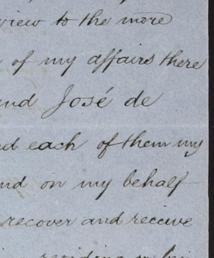 view to the more
of my affairs there
and José de
each of them my
and on my behalf
recover and receive
residing